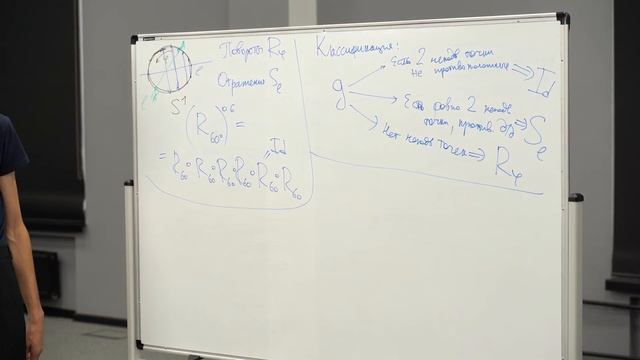 Повороты Rφ
Отражения Sℓ
S¹
(R₆₀°)°⁶ =
= R₆₀∘R₆₀∘R₆₀∘R₆₀∘R₆₀∘R₆₀
= Id
ℓ
Классификация:
g
Есть 2 неподв. точки
не противоположные ⇒ Id
Есть ровно 2 неподв
точки, против. ⇒ Sℓ
Нет неподв точек ⇒ Rφ